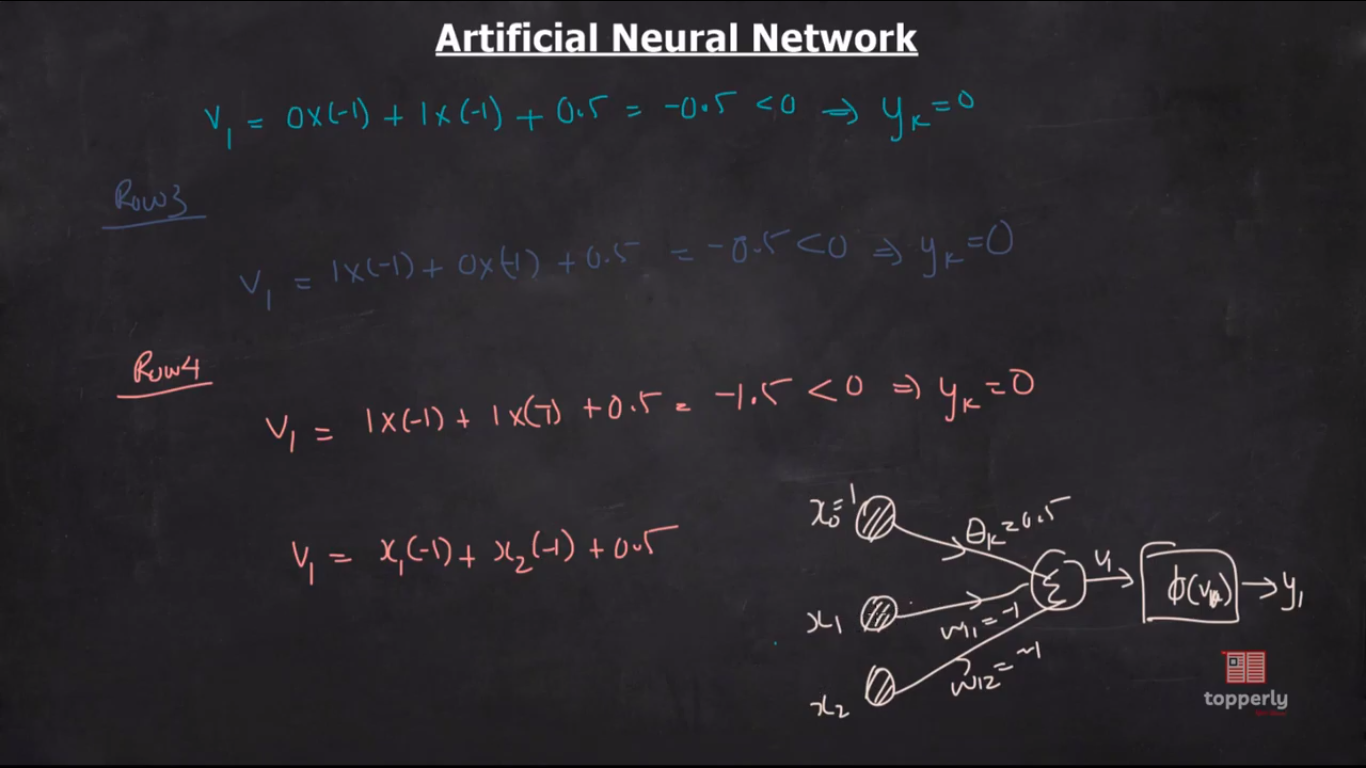 Artificial Neural Network
V₁ = 0x(-1) + 1x(-1) + 0.5 = -0.5 < 0 ⇒ yₖ = 0
Row3
V₁ = 1x(-1) + 0x(-1) + 0.5 = -0.5 < 0 ⇒ yₖ = 0
Row4
V₁ = 1x(-1) + 1x(-1) + 0.5 = -1.5 < 0 ⇒ yₖ = 0
V₁ = x₁(-1) + x₂(-1) + 0.5
x₀=1
θₖ=0.5
Σ
V₁
ϕ(vₖ)
y₁
x₁
w₁₁=-1
w₁₂=-1
x₂
topperly